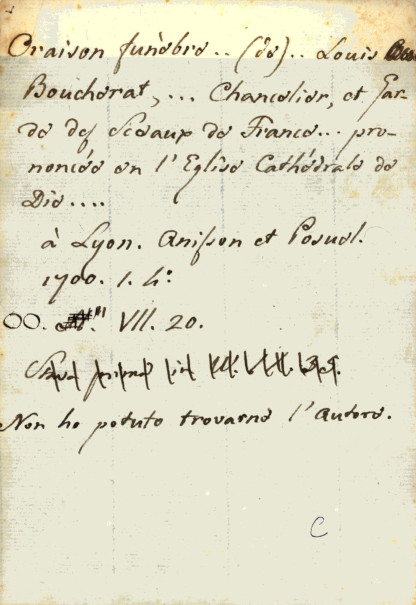 Oraison funèbre.. (de).. Louis
Boucherat, ... Chancelier, et Gar-
de des Sceaux de France... pro-
noncée en l'Eglise Cathédrale de
Die....
à Lyon. Anisson et Posuel.
1700. 1. 4°.
OO. VII. 20.
Non ho potuto trovarne l'Autore.
C